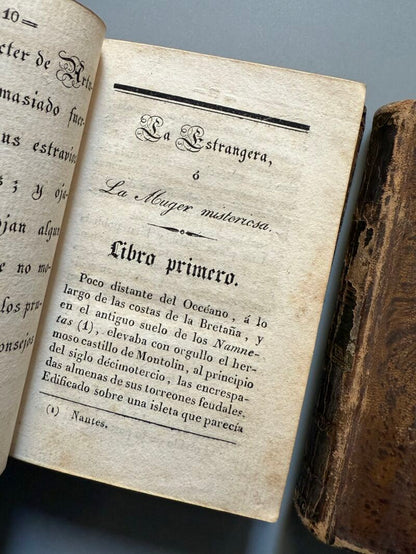 10=
cter de Arte-
masiado fuer-
sus estravios
s; y oja-
ojan algun
e no mo-
los pru-
onsejos
La Estrangera,
ó
La Muger misteriosa.
Libro primero.
Poco distante del Occéano, á lo
largo de las costas de la Bretaña, y
en el antiguo suelo de los Namne-
tas (1), elevaba con orgullo el her-
moso castillo de Montolin, al principio
del siglo décimotercio, las encrespa-
das almenas de sus torreones feudales.
Edificado sobre una isleta que parecía
(1) Nantes.